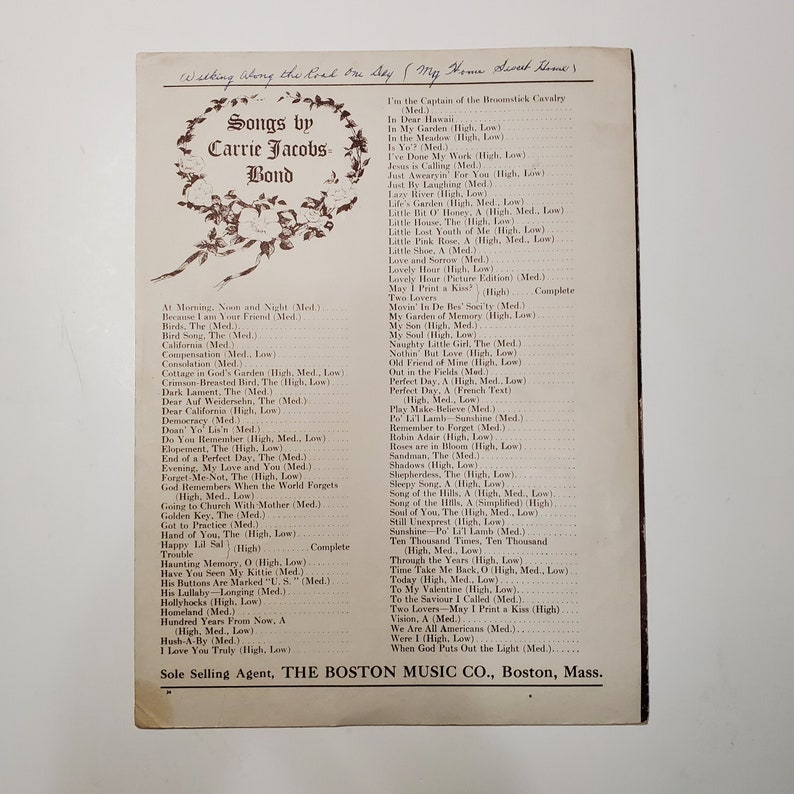 Walking Along the Road One Day (My Home Sweet Home)
Songs by
Carrie Jacobs=
Bond
At Morning, Noon and Night (Med.)......
Because I am Your Friend (Med.)......
Birds, The (Med.)......
Bird Song, The (Med.)......
California (Med.)......
Compensation (Med., Low)......
Consolation (Med.)......
Cottage in God's Garden (High, Med., Low)
Crimson-Breasted Bird, The (High, Low)....
Dark Lament, The (Med.)......
Dear Auf Weidersehn, The (Med.)......
Dear California (High, Low)......
Democracy (Med.)......
Doan' Yo' Lis'n (Med.)......
Do You Remember (High, Med., Low)......
Elopement, The (High, Low)......
End of a Perfect Day, The (Med.)......
Evening, My Love and You (Med.)......
Forget-Me-Not, The (High, Low)......
God Remembers When the World Forgets
(High, Med., Low)......
Going to Church With Mother (Med.)......
Golden Key, The (Med.)......
Got to Practice (Med.)......
Hand of You, The (High, Low)......
Happy Lil Sal
Trouble } (High)......Complete
Haunting Memory, O (High, Low)......
Have You Seen My Kittie (Med.)......
His Buttons Are Marked "U. S." (Med.)....
His Lullaby—Longing (Med.)......
Hollyhocks (High, Low)......
Homeland (Med.)......
Hundred Years From Now, A
(High, Med., Low)......
Hush-A-By (Med.)......
I Love You Truly (High, Low)......
I'm the Captain of the Broomstick Cavalry
(Med.)......
In Dear Hawaii......
In My Garden (High, Low)......
In the Meadow (High, Low)......
Is Yo'? (Med.)......
I've Done My Work (High, Low)......
Jesus is Calling (Med.)......
Just Awearyin' For You (High, Low)......
Just By Laughing (Med.)......
Lazy River (High, Low)......
Life's Garden (High, Med., Low)......
Little Bit O' Honey, A (High, Med., Low)..
Little House, The (High, Low)......
Little Lost Youth of Me (High, Low)......
Little Pink Rose, A (High, Med., Low)....
Little Shoe, A (Med.)......
Love and Sorrow (Med.)......
Lovely Hour (High, Low)......
Lovely Hour (Picture Edition) (Med.)......
May I Print a Kiss?
Two Lovers } (High).....Complete
Movin' In De Bes' Soci'ty (Med.)......
My Garden of Memory (High, Low)......
My Son (High, Med.)......
My Soul (High, Low)......
Naughty Little Girl, The (Med.)......
Nothin' But Love (High, Low)......
Old Friend of Mine (High, Low)......
Out in the Fields (Med.)......
Perfect Day, A (High, Med., Low)......
Perfect Day, A (French Text)
(High, Med., Low)......
Play Make-Believe (Med.)......
Po' Li'l Lamb—Sunshine (Med.)......
Remember to Forget (Med.)......
Robin Adair (High, Low)......
Roses are in Bloom (High, Low)......
Sandman, The (Med.)......
Shadows (High, Low)......
Shepherdess, The (High, Low)......
Sleepy Song, A (High, Low)......
Song of the Hills, A (High, Med., Low)....
Song of the Hills, A (Simplified) (High)....
Soul of You, The (High, Med., Low)......
Still Unexprest (High, Low)......
Sunshine—Po' Li'l Lamb (Med.)......
Ten Thousand Times, Ten Thousand
(High, Med., Low)......
Through the Years (High, Low)......
Time Take Me Back, O (High, Med., Low)..
Today (High, Med., Low)......
To My Valentine (High, Low)......
To the Saviour I Called (Med.)......
Two Lovers—May I Print a Kiss (High)....
Vision, A (Med.)......
We Are All Americans (Med.)......
Were I (High, Low)......
When God Puts Out the Light (Med.)......
Sole Selling Agent, THE BOSTON MUSIC CO., Boston, Mass.